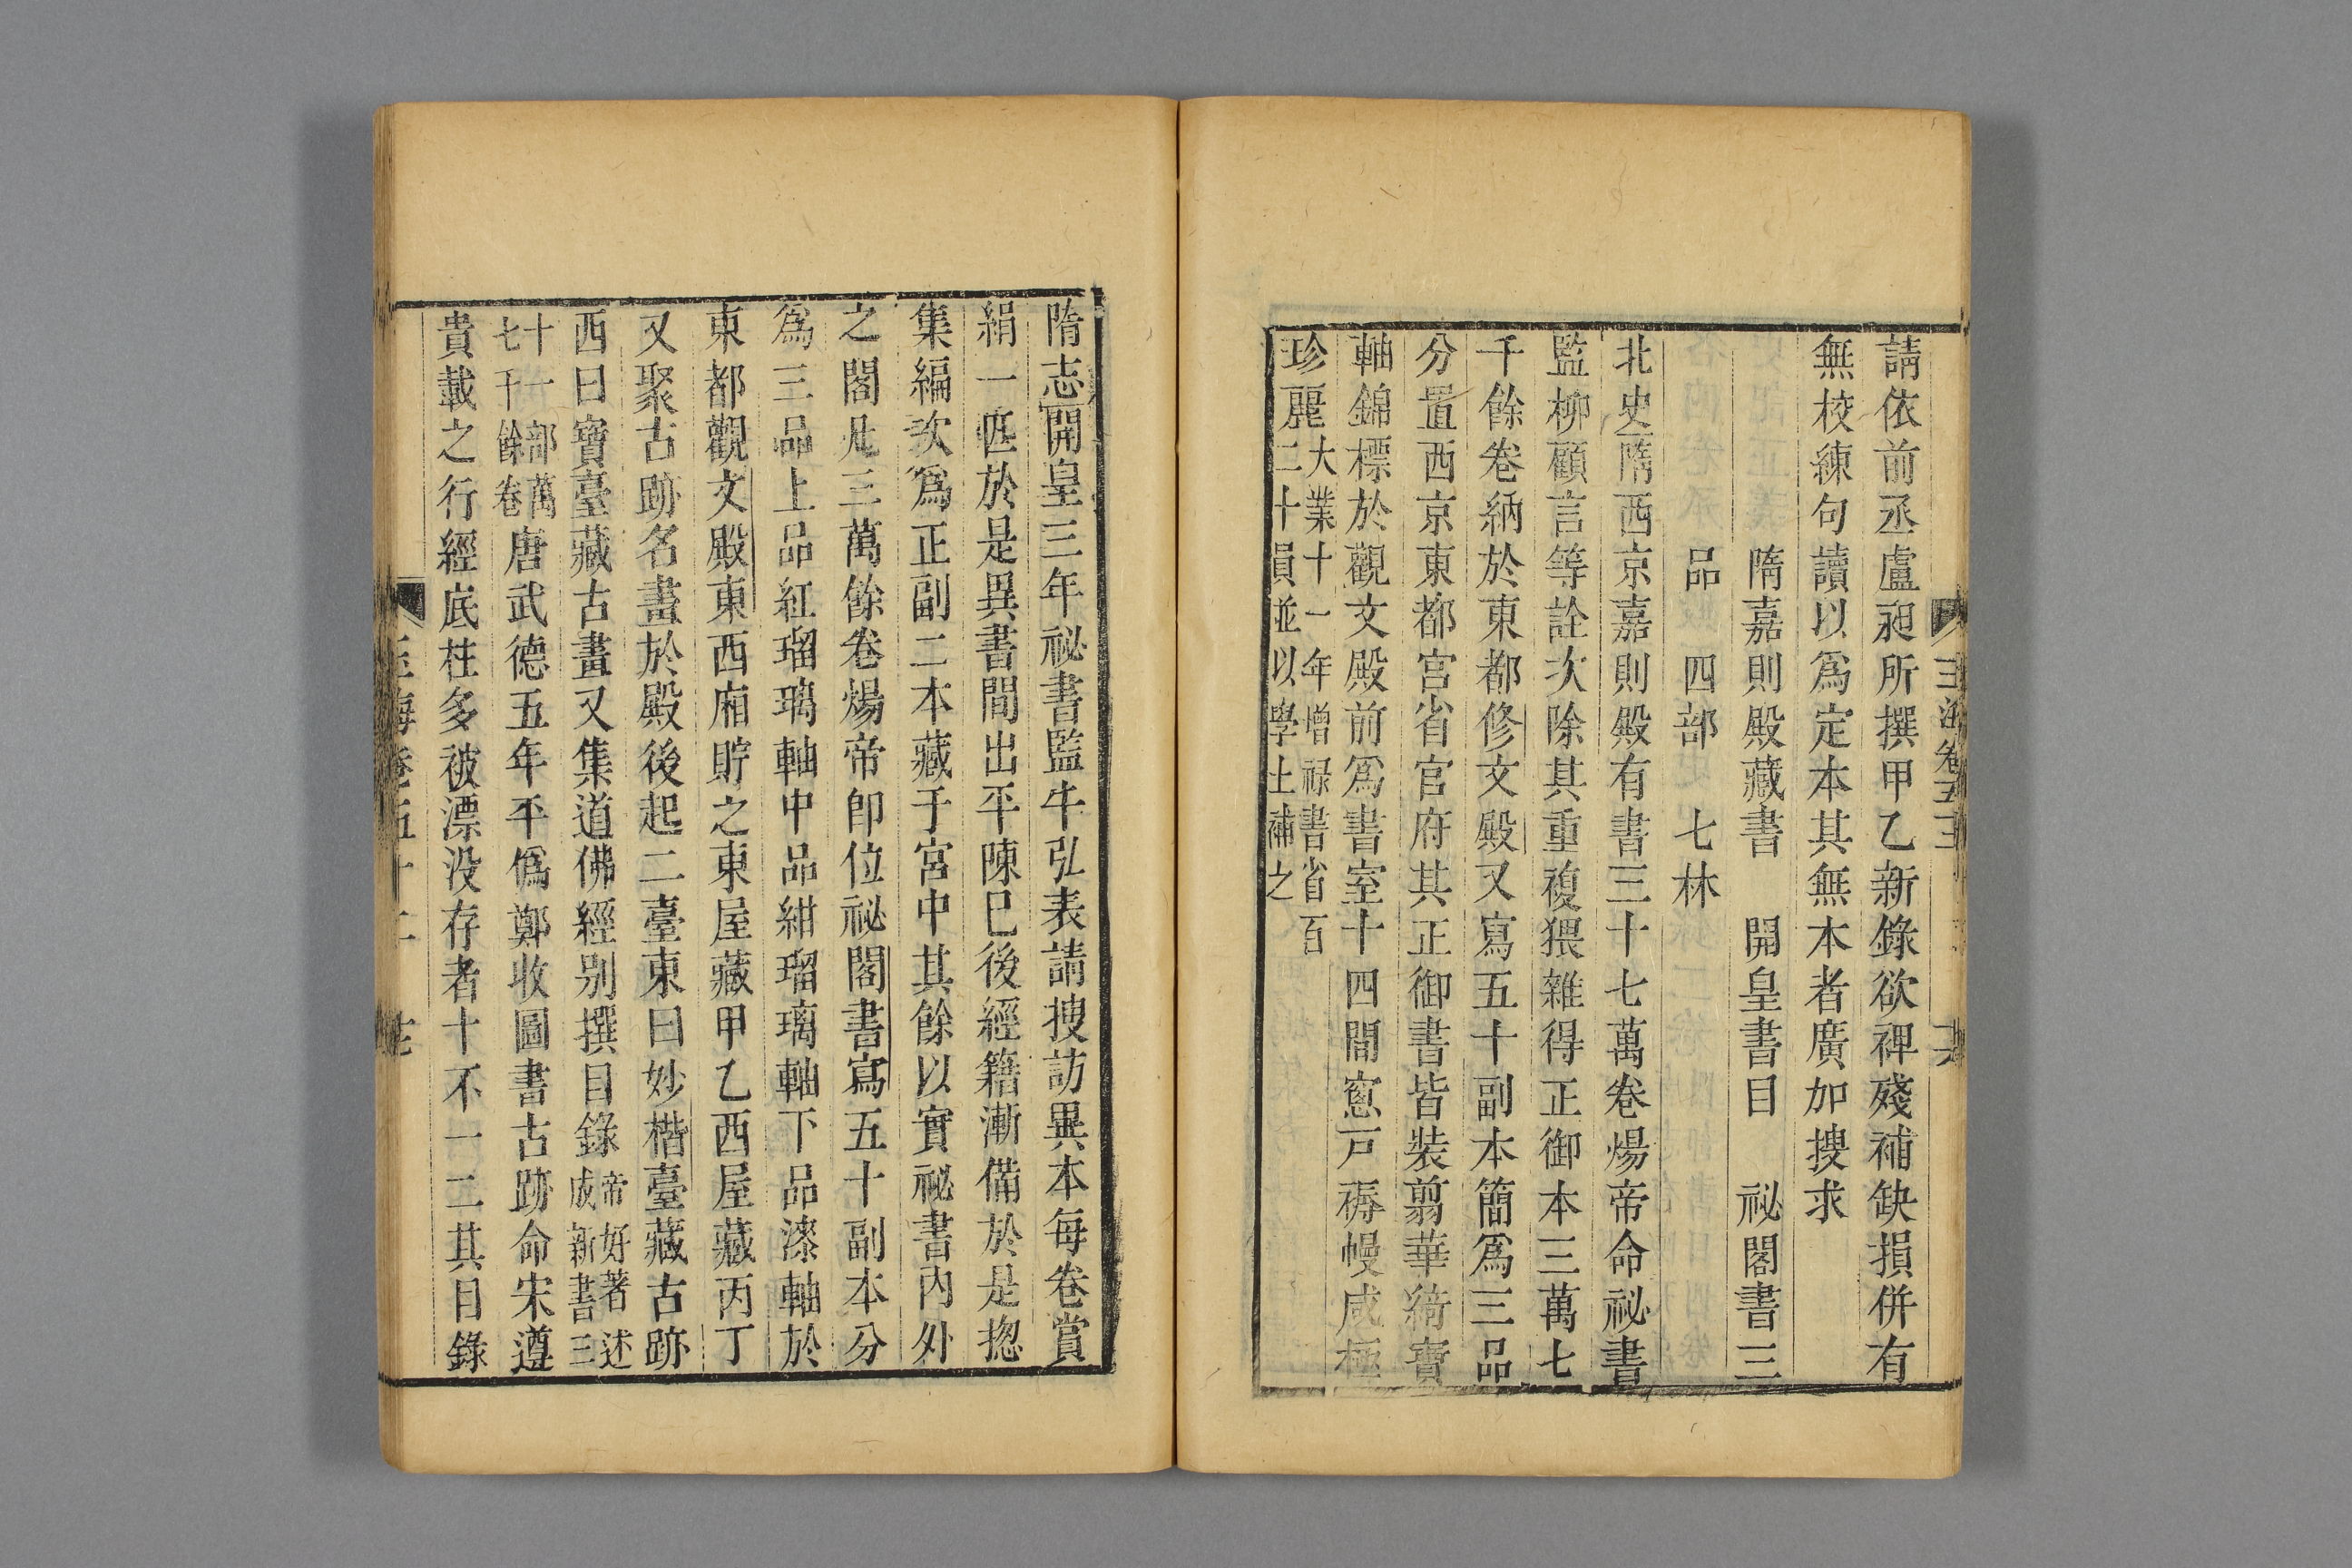 請依前丞盧昶所撰甲乙新錄欲裨殘補缺損併有
無校練句讀以爲定本其無本者廣加搜求
隋嘉則殿藏書 開皇書目 祕閣書三
品 四部 七林
北史隋西京嘉則殿有書三十七萬卷煬帝命祕書
監柳顧言等詮次除其重複猥雜得正御本三萬七
千餘卷納於東都修文殿又寫五十副本簡爲三品
分置西京東都宮省官府其正御書皆裝翦華綺寶
軸錦標於觀文殿前爲書室十四間窻戸褥幔咸極
珍麗大業十一年增祕書省百
二十員並以學士補之
隋志開皇三年祕書監牛弘表請搜訪異本每卷賞
絹一匹於是異書間出平陳已後經籍漸備於是揔
集編次爲正副二本藏于宮中其餘以實祕書內外
之閣凡三萬餘卷煬帝卽位祕閣書寫五十副本分
爲三品上品紅瑠璃軸中品紺瑠璃軸下品漆軸於
東都觀文殿東西廂貯之東屋藏甲乙西屋藏丙丁
又聚古跡名畫於殿後起二臺東曰妙楷臺藏古跡
西曰寶臺藏古畫又集道佛經別撰目錄帝好著述
成新書三
十一部萬
七千餘卷唐武德五年平僞鄭收圖書古跡命宋遵
貴載之行經底柱多被漂没存者十不一二其目錄